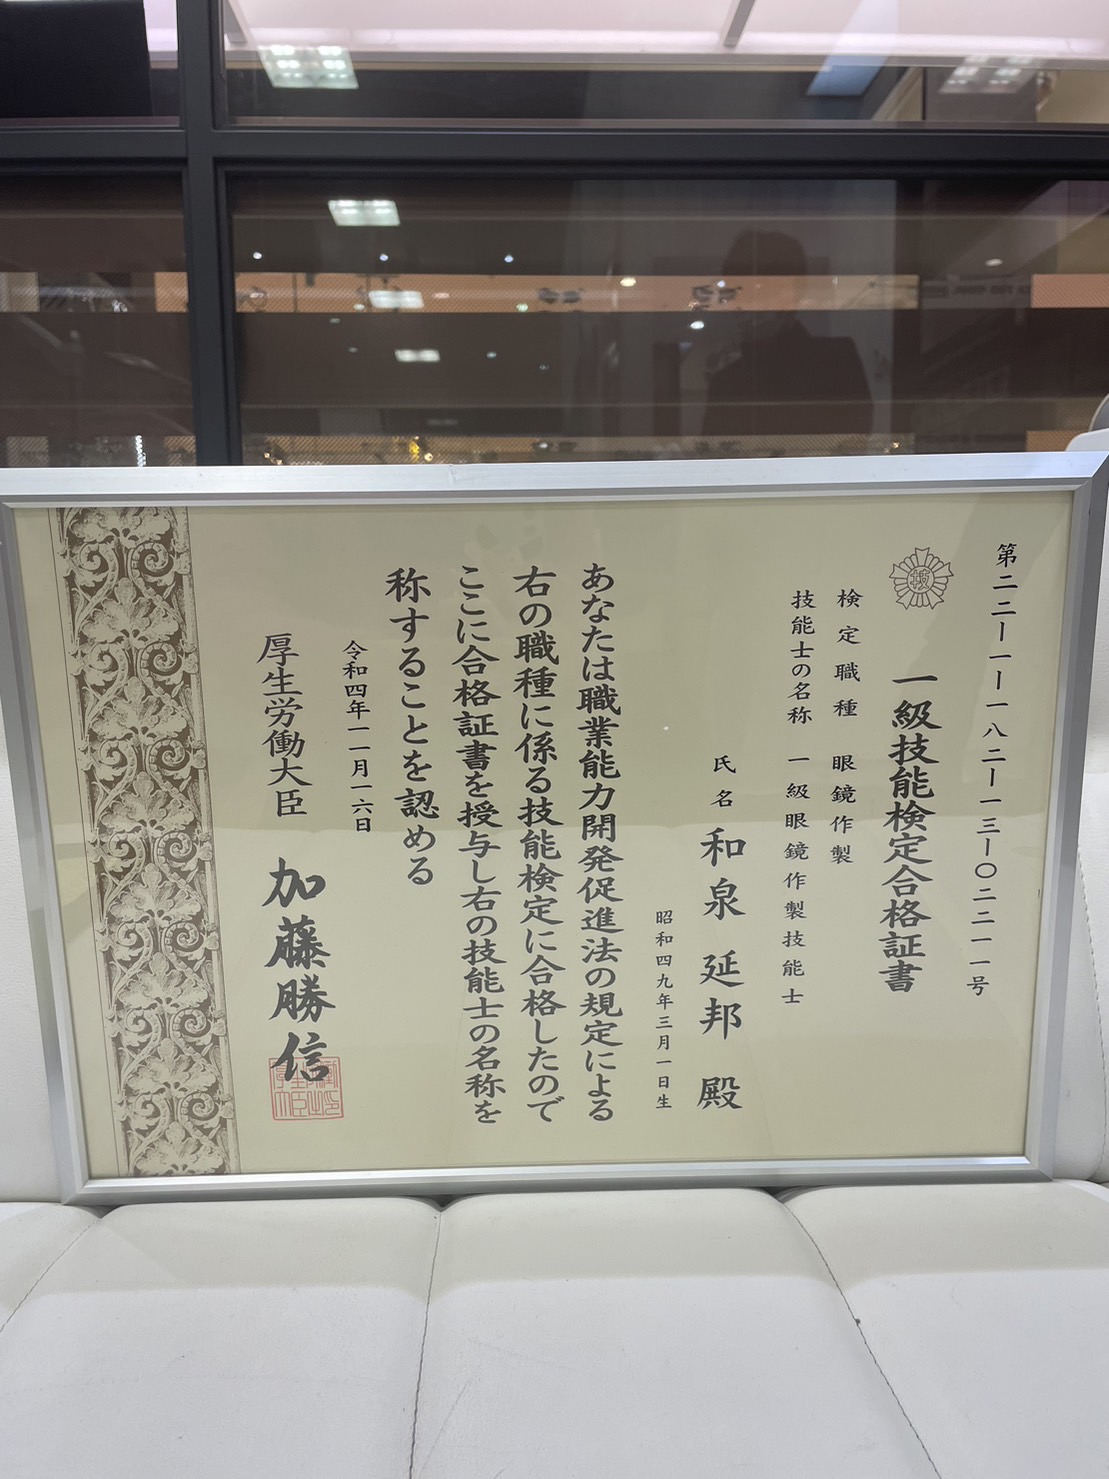 第二二ー一ー一八二ー一三ー〇二二一一号
技
一級技能検定合格証書
検定職種 眼鏡作製
技能士の名称 一級眼鏡作製技能士
氏名 和泉延邦 殿
昭和四九年三月一日生
あなたは職業能力開発促進法の規定による
右の職種に係る技能検定に合格したので
ここに合格証書を授与し右の技能士の名称を
称することを認める
令和四年一一月一六日
厚生労働大臣 加藤勝信